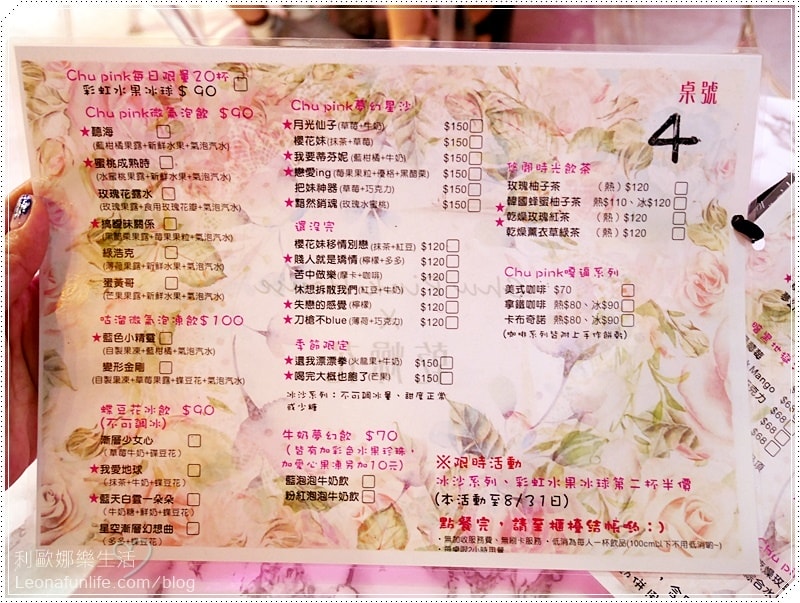 Chu pink每日限量20杯
彩虹水果冰球$90
Chu pink微氣泡飲 $90
★聽海
(藍柑橘果露+新鮮水果+氣泡汽水)
★蜜桃成熟時
(水蜜桃果露+新鮮水果+氣泡汽水)
玫瑰花露水
(玫瑰果露+食用玫瑰花瓣+氣泡汽水)
★搞曖昧關係
(黑醋栗果露+莓果果粒+氣泡汽水)
綠浩克
(薄荷果露+新鮮水果+氣泡汽水)
蛋黃哥
(芒果果露+新鮮水果+氣泡汽水)
咕溜微氣泡凍飲$100
★藍色小精靈
(自製果凍+藍柑橘+氣泡汽水)
變形金剛
(自製果凍+草莓果露+蝶豆花+氣泡汽水)
蝶豆花冰飲 $90
(不可調冰)
漸層少女心
(草莓牛奶+蝶豆花)
★我愛地球
(抹茶+牛奶+蝶豆花)
★藍天白雲一朵朵
(牛奶糖+鮮奶+蝶豆花)
星空漸層幻想曲
(多多+蝶豆花)
Chu pink夢幻星沙
★月光仙子(草莓+牛奶) $150
櫻花妹(抹茶+草莓) $150
★我要蒂芬妮(藍柑橘+牛奶) $150
★戀愛ing(莓果果粒+優格+黑醋栗) $150
把妹神器(草莓+巧克力) $150
★黯然銷魂(玫瑰水蜜桃) $150
還沒完
櫻花妹移情別戀(抹茶+紅豆) $120
★賤人就是矯情(檸檬+多多) $120
苦中做樂(摩卡+咖啡) $120
休想拆散我們(紅豆+牛奶) $120
★失戀的感覺(檸檬) $120
★刀槍不blue(薄荷+巧克力) $120
季節限定
★還我漂漂拳(火龍果+牛奶) $150
★喝完大概也飽了(芒果) $150
冰沙系列：不可調冰量、甜度正常
或少糖
牛奶夢幻飲 $70
(皆有加彩色水果珍珠，
加愛心果凍另加10元)
藍泡泡牛奶飲
粉紅泡泡牛奶飲
桌號
4
悠閒時光飲茶
玫瑰柚子茶 (熱)$120
★韓國蜂蜜柚子茶 熱$110、冰$120
★乾燥玫瑰紅茶 (熱)$120
乾燥薰衣草綠茶 (熱)$120
Chu pink嘎逼系列
美式咖啡 $70
拿鐵咖啡 熱$80、冰$90
卡布奇諾 熱$80、冰$90
(咖啡系列皆附上手作餅乾)
※限時活動
冰沙系列、彩虹水果冰球第二杯半價
(本活動至8/31日)
點餐完，請至櫃檯結帳喲：)
・無加收服務費、無刷卡服務，低消為每人一杯飲品(100cm以下不用低消喲~)
・每桌限2小時用餐
Chu pink
Mango
$68
$68
$68
利歐娜樂生活
Leonafunlife.com/blog